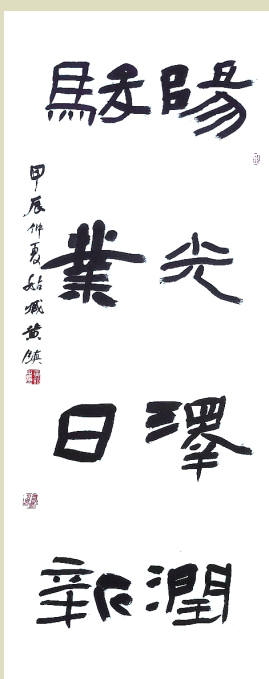 陽光澤潤
駿業日新
甲辰仲夏姑臧黄